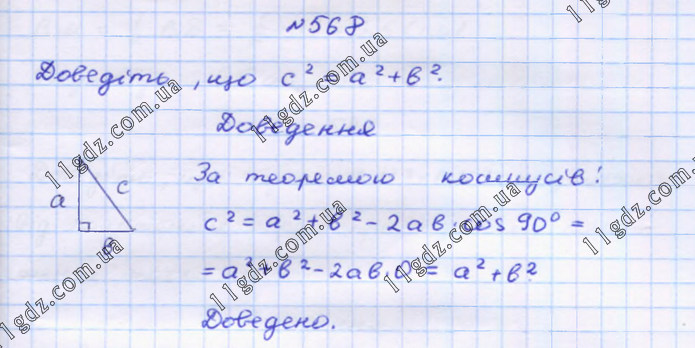 №568
Доведіть, що c² = a² + b².
Доведення
За теоремою косинусів:
c² = a² + b² - 2ab · cos 90° =
= a² + b² - 2ab · 0 = a² + b².
Доведено.
a
c
b
11gdz.com.ua
11gdz.com.ua
11gdz.com.ua
11gdz.com.ua
11gdz.com.ua
11gdz.com.ua
11gdz.com.ua